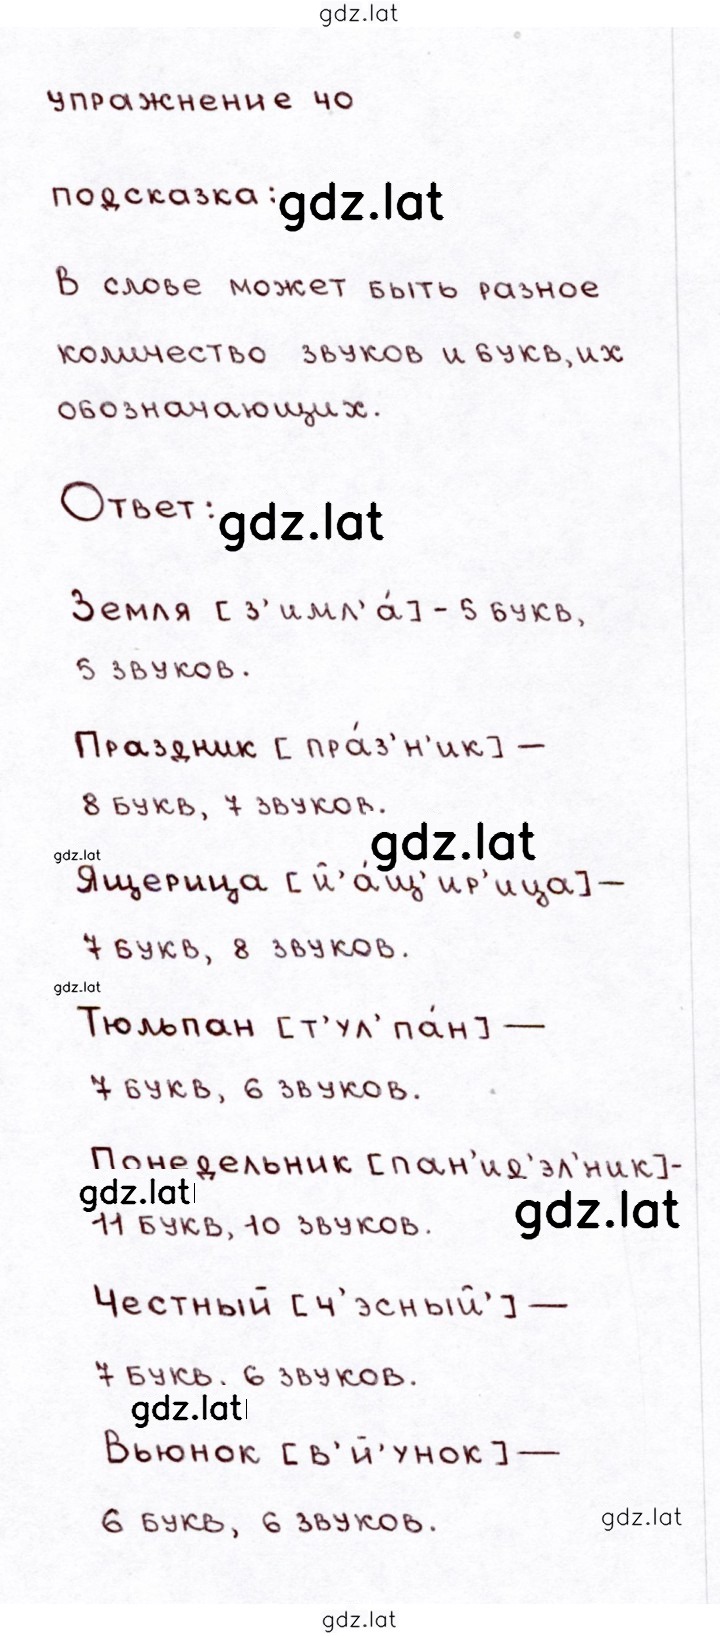 gdz.lat
упражнение 40
подсказка:
gdz.lat
В слове может быть разное
количество звуков и букв, их
обозначающих.
Ответ:
gdz.lat
Земля [з'имл'а́] - 5 букв,
5 звуков.
Праздник [пра́з'н'ик] —
8 букв, 7 звуков.
gdz.lat
gdz.lat
Ящерица [й'а́щ'ир'ица] —
7 букв, 8 звуков.
gdz.lat
Тюльпан [т'ул'па́н] —
7 букв, 6 звуков.
Понедельник [пан'ид'эл'ник]-
gdz.lat
gdz.lat
11 букв, 10 звуков.
Честный [ч'эсный'] —
7 букв. 6 звуков.
gdz.lat
Вьюнок [в'й'унок] —
6 букв, 6 звуков.
gdz.lat
gdz.lat